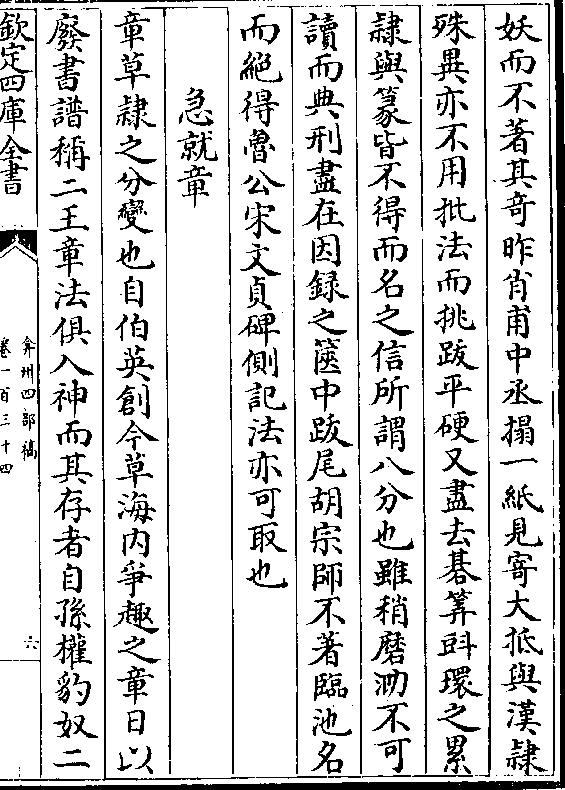 妖而不著其奇昨肖甫中丞搨一紙見寄大抵與漢隸
殊異亦不用批法而挑跋平硬又盡去碁筭㪷環之累
隸與篆皆不得而名之信所謂八分也雖稍磨泐不可
讀而典刑盡在因録之篋中跋尾胡宗師不著臨池名
而絕得魯公宋文貞碑側記法亦可取也
急就章
章草隸之分變也自伯英創今草海内爭趣之章日以
廢書譜稱二王章法俱入神而其存者自孫權豹奴二
欽定四庫全書
弇州四部稿
卷一百三十四
六